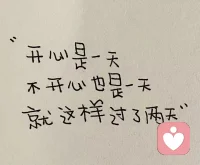 “开心是一天
不开心也是一天
就这样过了两天”